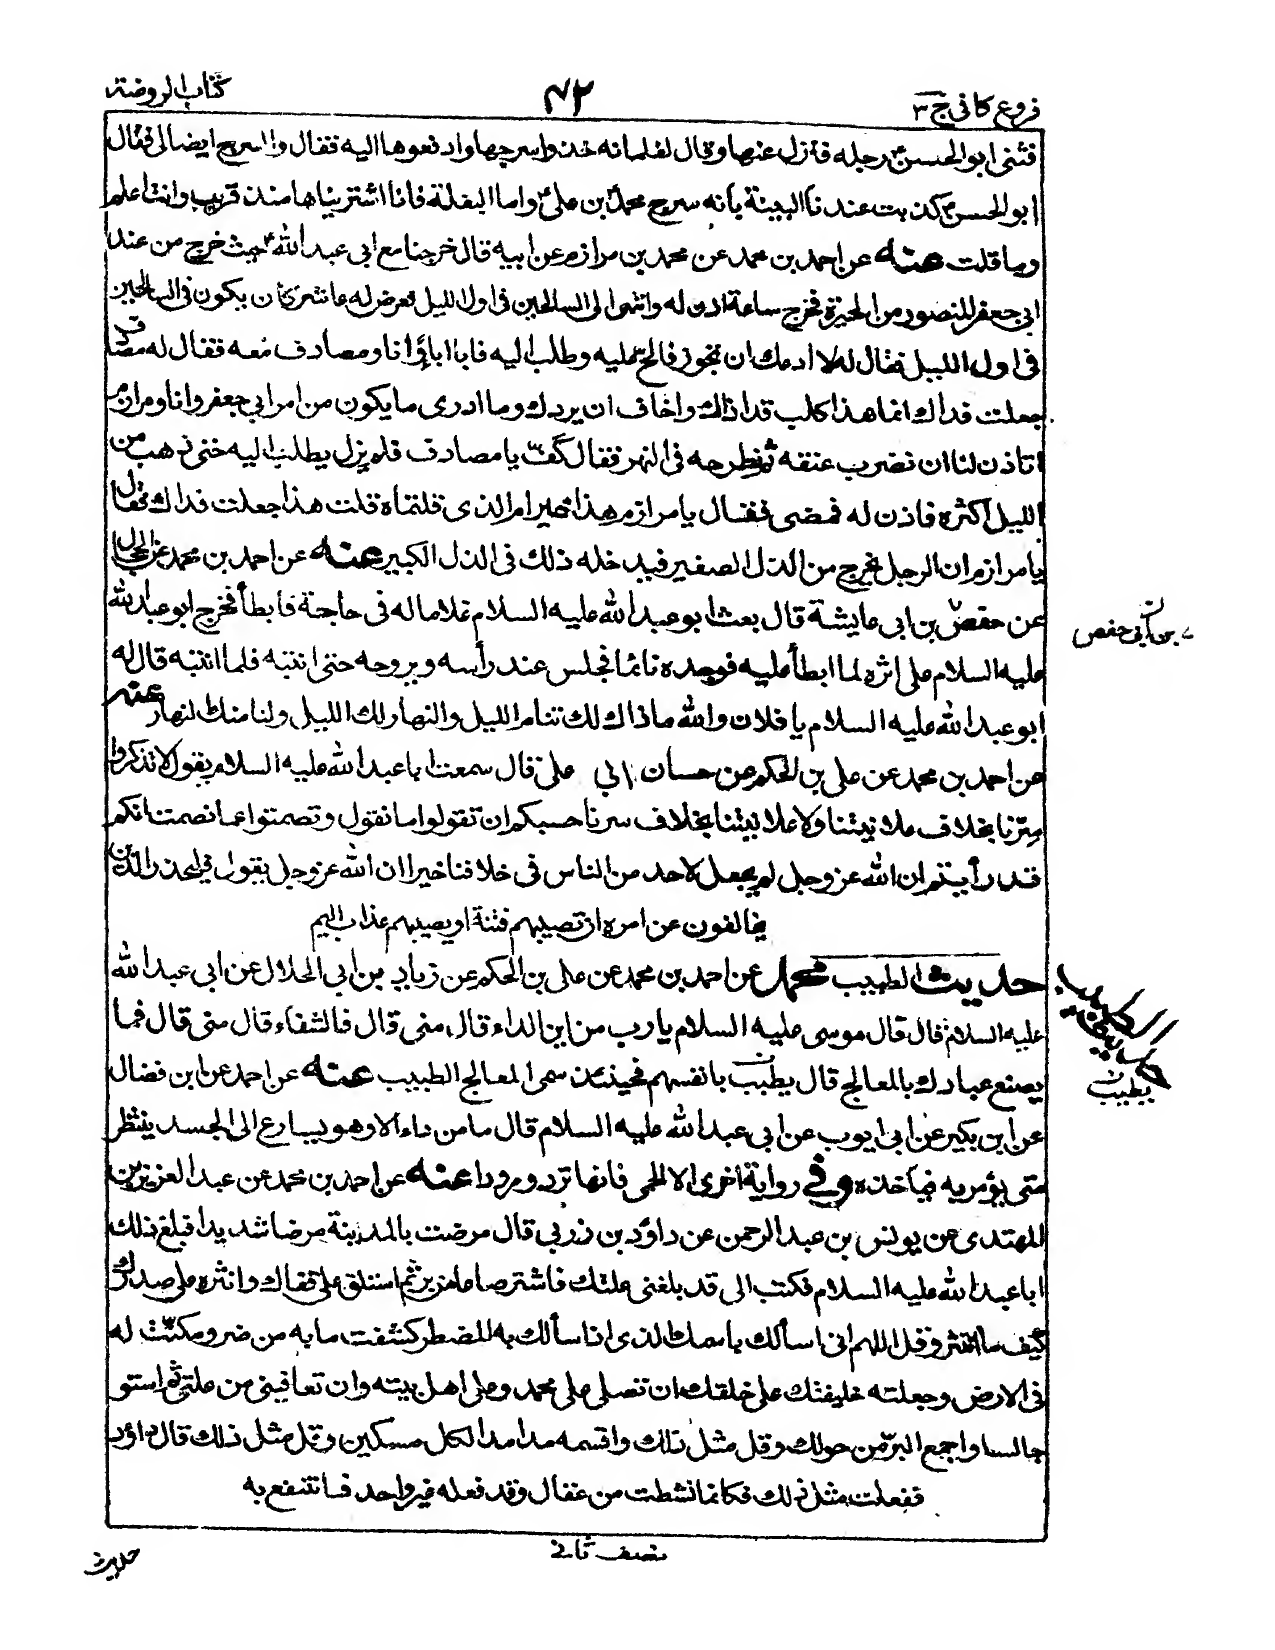 فروع كافى ج ٣
٤٢
كتاب الروضة
فثنى ابو الحسن ع رجله فنزل عنها وقال لغلمانه خذوا سرجها وادفعوها اليه فقال والسرج ايضا لى فقال
ابو الحسن ع كذبت عندنا البينة بانه سرج محمد بن على ع واما البغلة فانا اشتريناها منذ قريب وانت اعلم
وما قلت عنه عن احمد بن محمد عن محمد بن مرازم عن ابيه قال خرجنا مع ابى عبد الله ع حيث خرج من عند
ابى جعفر المنصور من الحيرة فخرج ساعة اذن له وانتهى الى السالحين فى اول الليل فعرض له عاشر كان يكون فى السالحين
فى اول الليل فقال له لا ادعك ان تجوز فالح عليه وطلب اليه فابا اباؤا وانا ومصادف معه فقال له مصادف
جعلت فداك انما هذا كلب قد اذاك واخاف ان يردك وما ادرى ما يكون من امر ابى جعفر وانا ومرازم
اتاذن لنا ان نضرب عنقه ثم نطرحه فى النهر فقال كفّ يا مصادف فلم يزل يطلب اليه حتى ذهب من
الليل اكثره فاذن له فمضى فقال يا مرازم هذا خير ام الذى قلتماه قلت هذا جعلت فداك فقال
يا مرازم ان الرجل يخرج من الذل الصغير فيدخله ذلك فى الذل الكبير عنه عن احمد بن محمد عن الحجال
عن حفص بن ابى عايشة قال بعث ابو عبد الله عليه السلام غلاما له فى حاجة فابطأ فخرج ابو عبد الله
بن ابى حفص
عليه السلام على اثره لما ابطأ عليه فوجده نائما فجلس عند رأسه ويروحه حتى انتبه فلما انتبه قال له
ابو عبد الله عليه السلام يا فلان والله ما ذاك لك تنام الليل والنهار لك الليل ولنا منك النهار عنه
عن احمد بن محمد عن على بن الحكم عن حسان ابى على قال سمعت ابا عبد الله عليه السلام يقول لا تذكروا
سرّنا بخلاف علانيتنا ولا علانيتنا بخلاف سرنا حسبكم ان تقولوا ما نقول وتصمتوا عما نصمت انكم
قد رأيتم ان الله عز وجل لم يجعل لاحد من الناس فى خلافنا خيرا ان الله عز وجل يقول فليحذر الذين
يخالفون عن امره ان تصيبهم فتنة او يصيبهم عذاب اليم
حديث الطبيب محمد عن احمد بن محمد عن على بن الحكم عن زياد بن ابى الحلال عن ابى عبد الله
عليه السلام قال قال موسى عليه السلام يا رب من اين الداء قال منى قال فالشفاء قال منى قال فما
يصنع عبادك بالمعالج قال يطبب بانفسهم فحينئذ سمى المعالج الطبيب عنه عن احمد عن ابن فضال
يطيب
عن ابن بكير عن ابى ايوب عن ابى عبد الله عليه السلام قال ما من داء الا وهو يسارع الى الجسد ينتظر
متى يؤمر به فياخذه وفى رواية اخرى الا الحمى فانها ترد ورودا عنه عن احمد بن محمد عن عبد العزيز بن
المهتدى عن يونس بن عبد الرحمن عن داؤد بن زربى قال مرضت بالمدينة مرضا شديدا فبلغ ذلك
ابا عبد الله عليه السلام فكتب الى قد بلغنى علتك فاشتر صاعا من بر ثم استلق على قفاك وانثره على صدرك
كيف ما انتثر وقل اللهم انى اسألك باسمك الذى اذا سألك به المضطر كشفت ما به من ضر ومكنت له
فى الارض وجعلته خليفتك على خلقك ان تصلى على محمد وعلى اهل بيته وان تعافينى من علتى ثم استو
جالسا واجمع البرّ من حولك وقل مثل ذلك واقسمه مدا مدا لكل مسكين وقل مثل ذلك قال داؤد
ففعلت مثل ذلك فكانما نشطت من عقال وقد فعله غير واحد فانتفع به
نصف ثانى
حديث